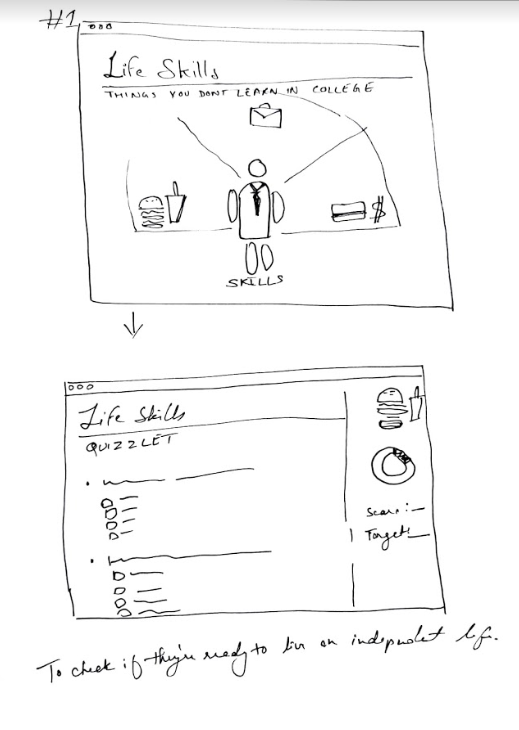 #1
Life Skills
THINGS YOU DONT LEARN IN COLLEGE
$
SKILLS
Life Skills
QUIZZLET
Score:
Target:
To check if they're ready to live an independent life.